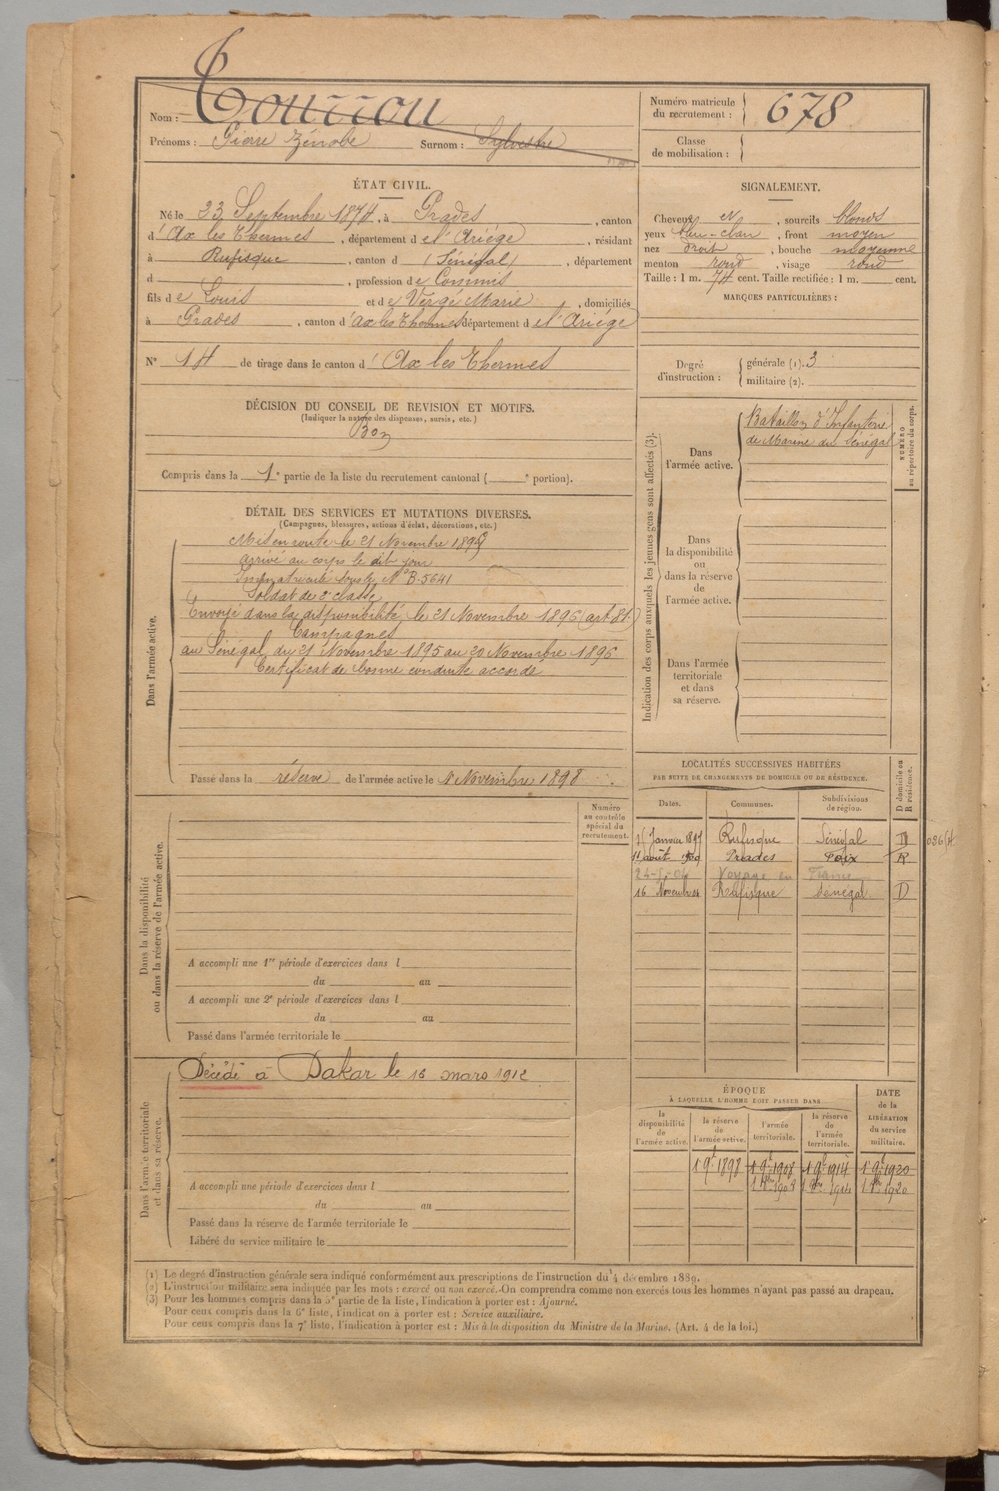 Nom : Tourrou
Prénoms : Pierre Zénobe Surnom : Sylvestre
Numéro matricule
du recrutement : 678
Classe
de mobilisation :
ÉTAT CIVIL.
Né le 23 Septembre 1874, à Prades, canton
d'Ax les Thermes, département de l'Ariège, résidant
à Rufisque, canton d (Sénégal), département
d , profession de Commis
fils de Louis et de Vergé Marie, domiciliés
à Prades, canton d'Ax les Thermes département de l'Ariège
N° 14 de tirage dans le canton d'Ax les Thermes
SIGNALEMENT.
Cheveux et, sourcils blonds
yeux bleu-clair, front moyen
nez droit, bouche moyenne
menton rond, visage rond
Taille : 1 m. 74 cent. Taille rectifiée : 1 m. cent.
MARQUES PARTICULIÈRES :
Degré
d'instruction :
générale (1). 3
militaire (2).
DÉCISION DU CONSEIL DE REVISION ET MOTIFS.
(Indiquer la nature des dispenses, sursis, etc.)
Bon
Compris dans la 1e partie de la liste du recrutement cantonal ( e portion).
DÉTAIL DES SERVICES ET MUTATIONS DIVERSES.
(Campagnes, blessures, actions d'éclat, décorations, etc.)
Dans l'armée active.
Mis en route le 21 Novembre 1895
Arrivé au corps le dit jour
Immatriculé sous le N° B-5641
Soldat de 2e classe
Envoyé dans la disponibilité, le 21 Novembre 1896 (art. 81.)
Campagnes
au Sénégal du 21 Novembre 1895 au 20 Novembre 1896
Certificat de bonne conduite accordé
Passé dans la réserve de l'armée active le 1 Novembre 1898
Indication des corps auxquels les jeunes gens sont affectés (3).
Dans
l'armée active.
Bataillon d'Infanterie
de Marine du Sénégal
NUMÉRO
au répertoire du corps.
Dans
la disponibilité
ou
dans la réserve
de
l'armée active.
Dans l'armée
territoriale
et dans
sa réserve.
LOCALITÉS SUCCESSIVES HABITÉES
PAR SUITE DE CHANGEMENTS DE DOMICILE OU DE RÉSIDENCE.
Dates. Communes. Subdivisions de région. D domicile ou R résidence.
Janvier 1897 Rufisque Sénégal D
11 août 1900 Prades Foix R
Voyage en France
16 Novembre Rufisque Sénégal D
Dans la disponibilité
ou dans la réserve de l'armée active.
Numéro
au contrôle
spécial du
recrutement.
A accompli une 1re période d'exercices dans l
du au
A accompli une 2e période d'exercices dans l
du au
Passé dans l'armée territoriale le
Dans l'armée territoriale
et dans sa réserve.
Décédé à Dakar le 16 mars 1912
A accompli une période d'exercices dans l
du au
Passé dans la réserve de l'armée territoriale le
Libéré du service militaire le
ÉPOQUE
À LAQUELLE L'HOMME DOIT PASSER DANS
la
disponibilité
de
l'armée active.
la réserve
de
l'armée active.
l'armée
territoriale.
la réserve
de
l'armée
territoriale.
DATE
de la
LIBÉRATION
du service
militaire.
1 9bre 1898 1 9bre 1908 1 9bre 1914 1 9bre 1920
(1) Le degré d'instruction générale sera indiqué conformément aux prescriptions de l'instruction du 4 décembre 1889.
(2) L'instruction militaire sera indiquée par les mots : exercé ou non exercé.-On comprendra comme non exercés tous les hommes n'ayant pas passé au drapeau.
(3) Pour les hommes compris dans la 5e partie de la liste, l'indication à porter est : Ajourné.
Pour ceux compris dans la 6e liste, l'indication à porter est : Service auxiliaire.
Pour ceux compris dans la 7e liste, l'indication à porter est : Mis à la disposition du Ministre de la Marine. (Art. 4 de la loi.)